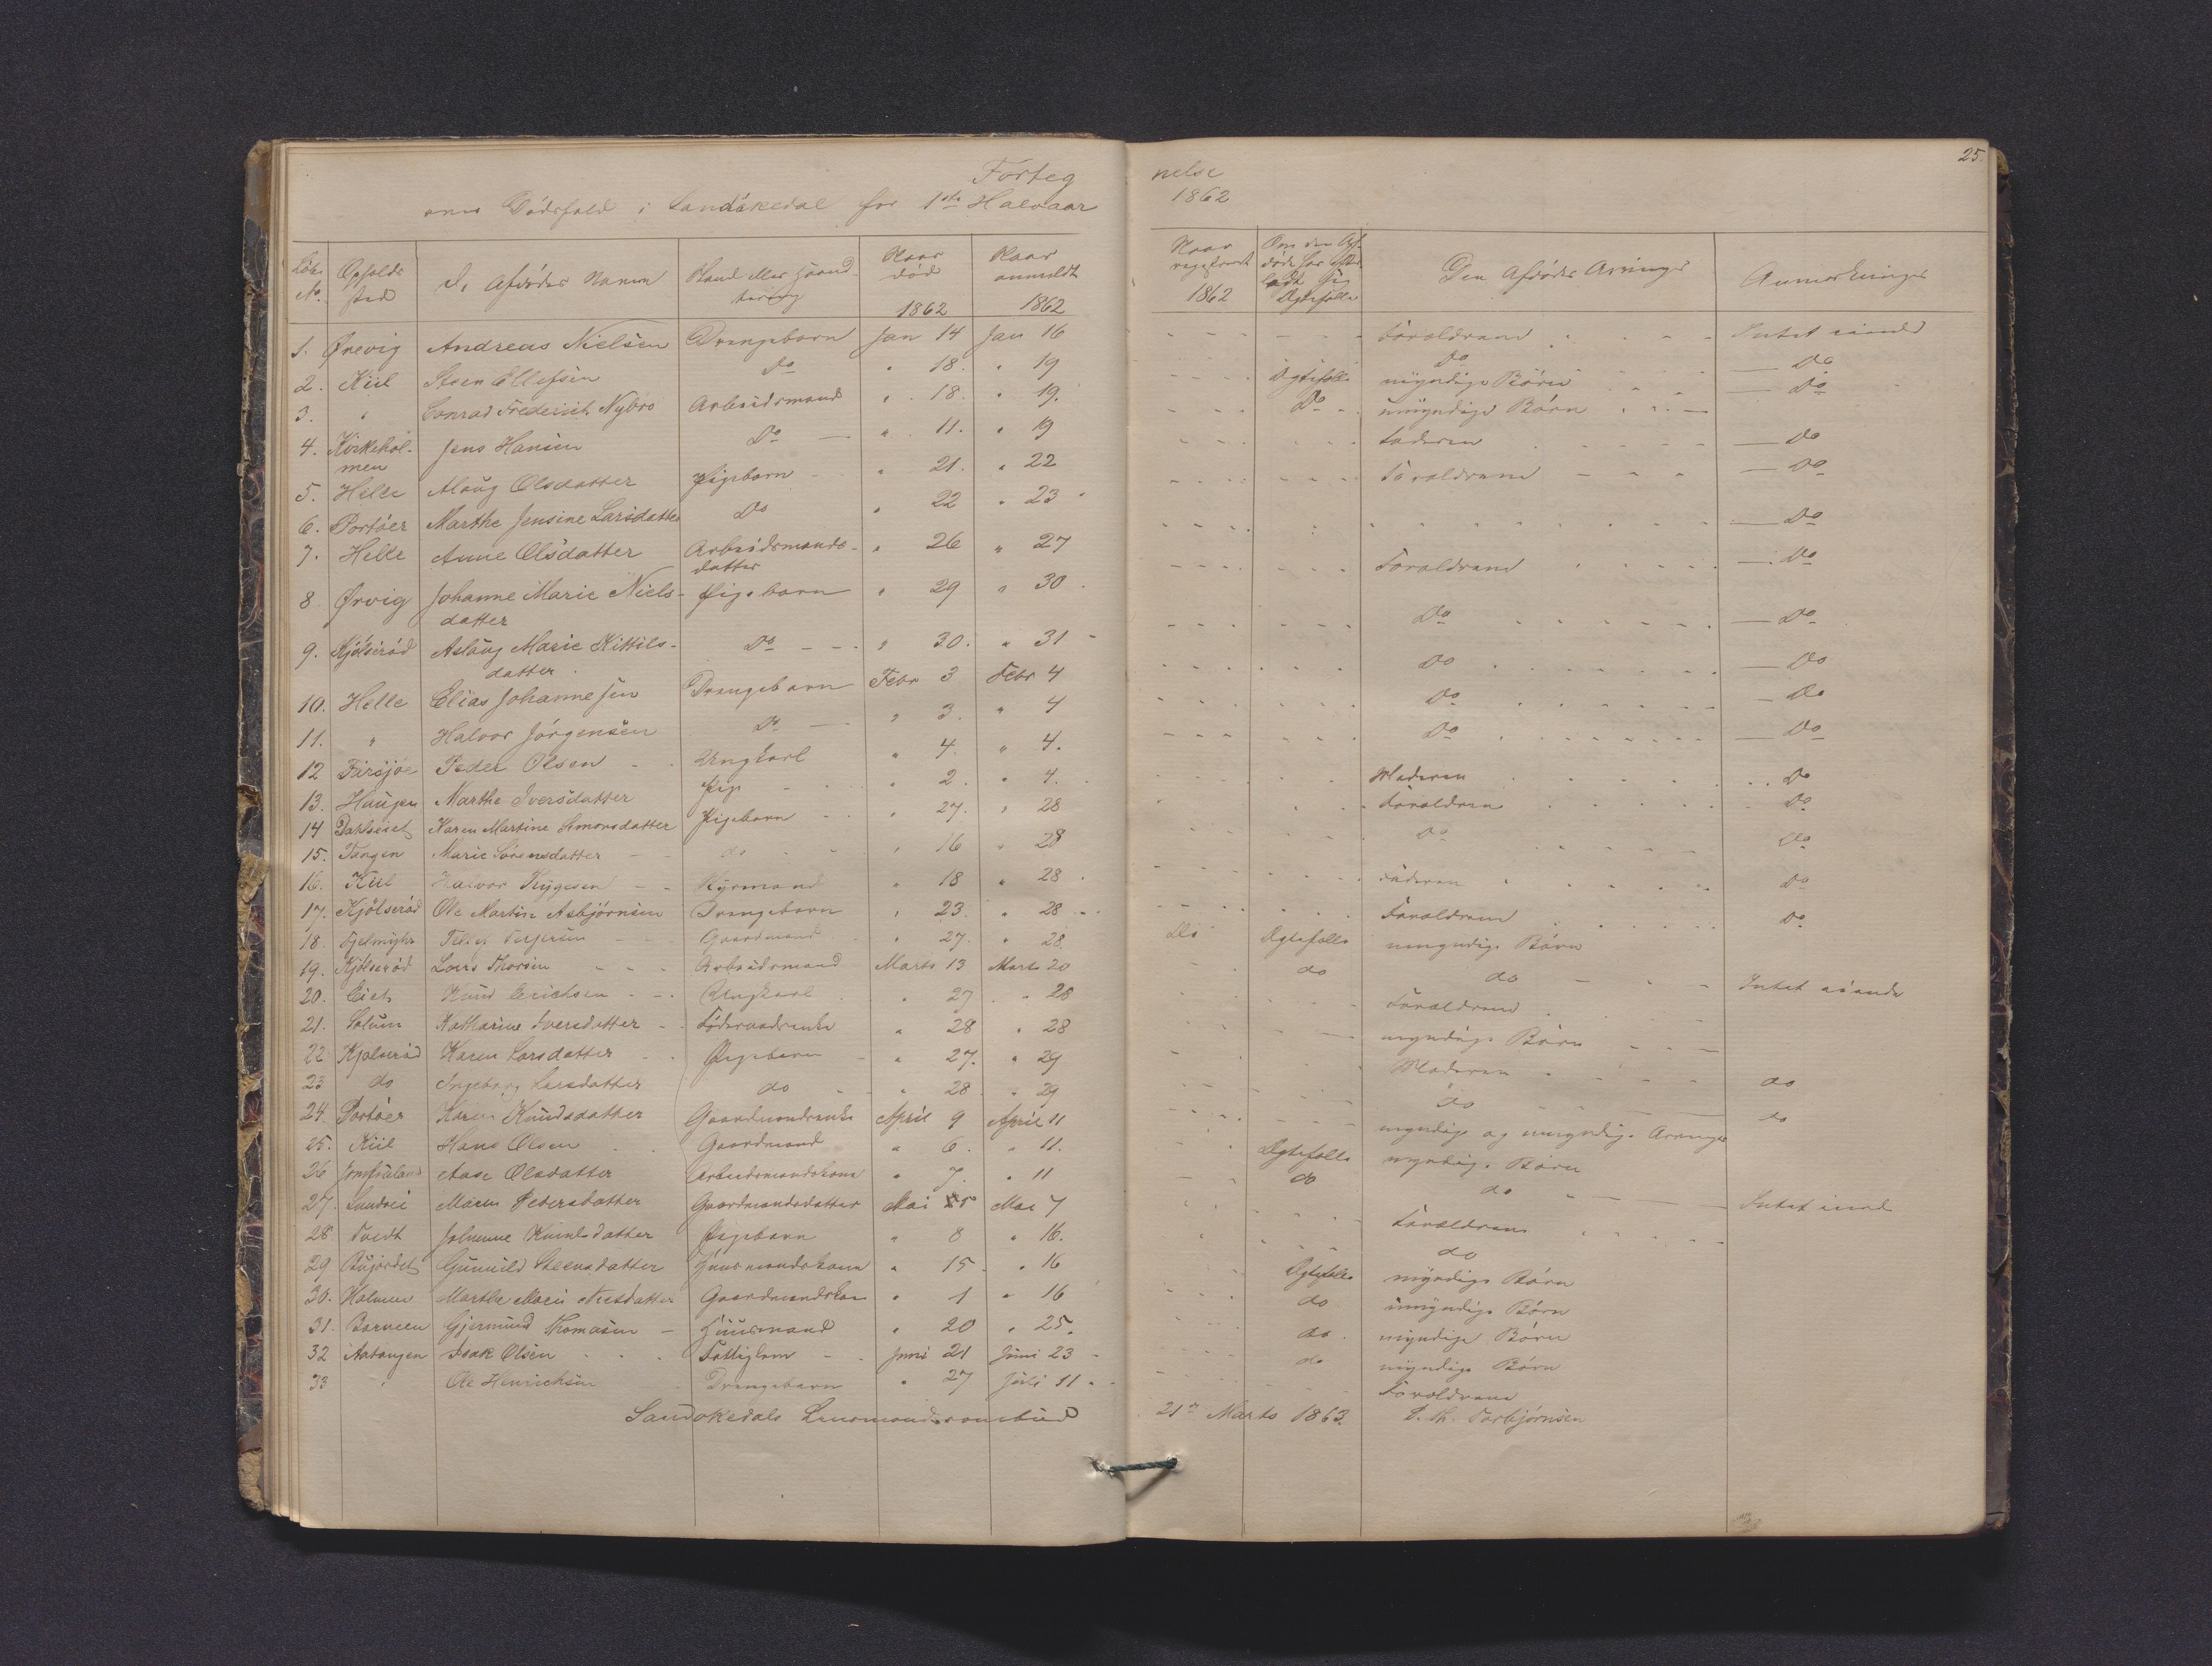 25.
Forteg nelse
over Dödsfald i Sandökedal for 1ste Halvaar 1862
Löbe No. Opholds sted De Afdödes Navne Naar död 1862 Naar anmeldt 1862 Naar 1862 Om den Afdöde har efterladt sig Ægtefælle Den Afdödes Arvinger Anmærkninger
1. Ørevig Andreas Nielsen Drengebarn Jan 14 Jan 16 Forældrene Intet eiende
2. Kiil Steen Ellefsen Do " 18. " 19 Do Do
3. " Conrad Frederick Nybro Arbeidsmand " 18. " 19. Ægtefælle myndige Börn Do
4. Kirkehol- Jens Hansen Do " 11. " 19 Do umyndige Börn
men
5. Helle Aloug Olsdatter Pigebarn " 21. " 22 Faderen Do
6. Portöer Marthe Jensine Larsdatter Do " 22 " 23 Forældrene Do
7. Helle Anne Olsdatter Arbeidsmands- " 26 " 27 Do
datter
8 Ørvig Johanne Marie Niels- Pigebarn " 29 " 30 Forældrene Do
datter
9. Kjölseröd Aslaug Marie Kittils- Do " 30. " 31 Do Do
datter
10. Helle Elias Johannesen Drengebarn Febr 3 Febr 4 Do Do
11. " Halvor Jörgensen Do " 3. " 4 Do Do
12 Farsjöe Peder Olsen Ungkarl " 4. " 4. Do Do
13. Haugen Marthe Iversdatter Pige " 2. " 4. Moderen Do
14 Dahlseiet Karen Martine Simonsdatter Pigebarn " 27. " 28 Forældrene Do
15. Tangen Marie Sörensdatter do " 16 " 28 Do Do
16. Kiil Halvor Trygesen " 18 " 28 Faderen Do
17. Kjölseröd Ole Martin Asbjörnsen Drengebarn " 23. " 28 Forældrene Do
18. Gaardmand " 27. " 28. Do Ægtefælle umyndige Börn
19. Kjölseröd Lars Thorsen Arbeidsmand Marts 13 Marts 20 do do Intet eiende
20. Eiet Knud Erichsen Ungkarl " 27 " 28 Forældrene
21. Solum Kathrine Iversdatter Föderaadsenke " 28 " 28 myndige Börn
22 Kjölseröd Karen Larsdatter Pigebarn " 27. " 29 Moderen do
23 do Ingeborg Larsdatter do " 28 " 29 do do
24. Portöer Karen Knudsdatter Gaardmandsenke April 9 April 11 myndige og umyndige Arvinger
25. Kiil Hans Olsen Gaardmand " 6. " 11. Ægtefælle myndige Börn
26 Jomfruland Aase Olsdatter Arbeidsmandskone " 7. " 11 do do
27. Sundsei Maren Pedersdatter Gaardmandsdatter Mai 5 Mai 7 Forældrene Intet eiend
28 Tvedt Johanne Knudsdatter Pigebarn " 8 " 16. do
29 Bujordet Gunuild Steensdatter Huusmandskone " 15 " 16 Ægtefælle myndige Börn
30. Holmen Marthe Marie Nielsdatter Gaardmandskone " 1 " 16 do umyndige Börn
31. Barneen Gjermund Thomasen Huusmand " 20 " 25. do myndige Börn
32 Aatangen Isak Olsen Fattiglem Juni 21 Juni 23 do myndige Börn
33 " Ole Henrichsen Drengebarn " 27 Juli 11 Forældrene
Sandökedals Lensmandsombud 21de Marts 1863. Torbjörnsen